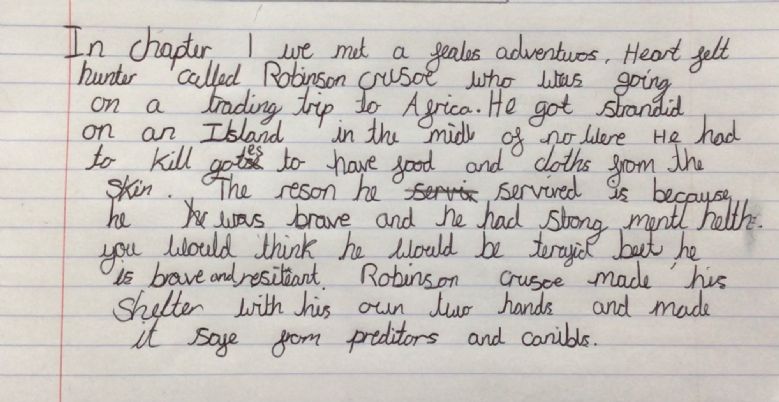 In chapter 1 we met a feales adventuros, Heart felt
hunter called Robinson Crusoe who was going
on a trading trip to Africa. He got strandid
on an Island in the midl of no Were He had
to kill gotes to have food and cloths from the
skin. The reson he servix servered is because
he he was brave and he had stong mentl helth.
you Would think he Would be terafid but he
is brave and resiliant. Robinson Crusoe made his
Shelter with his own two hands and made
it safe from preditors and canibls.